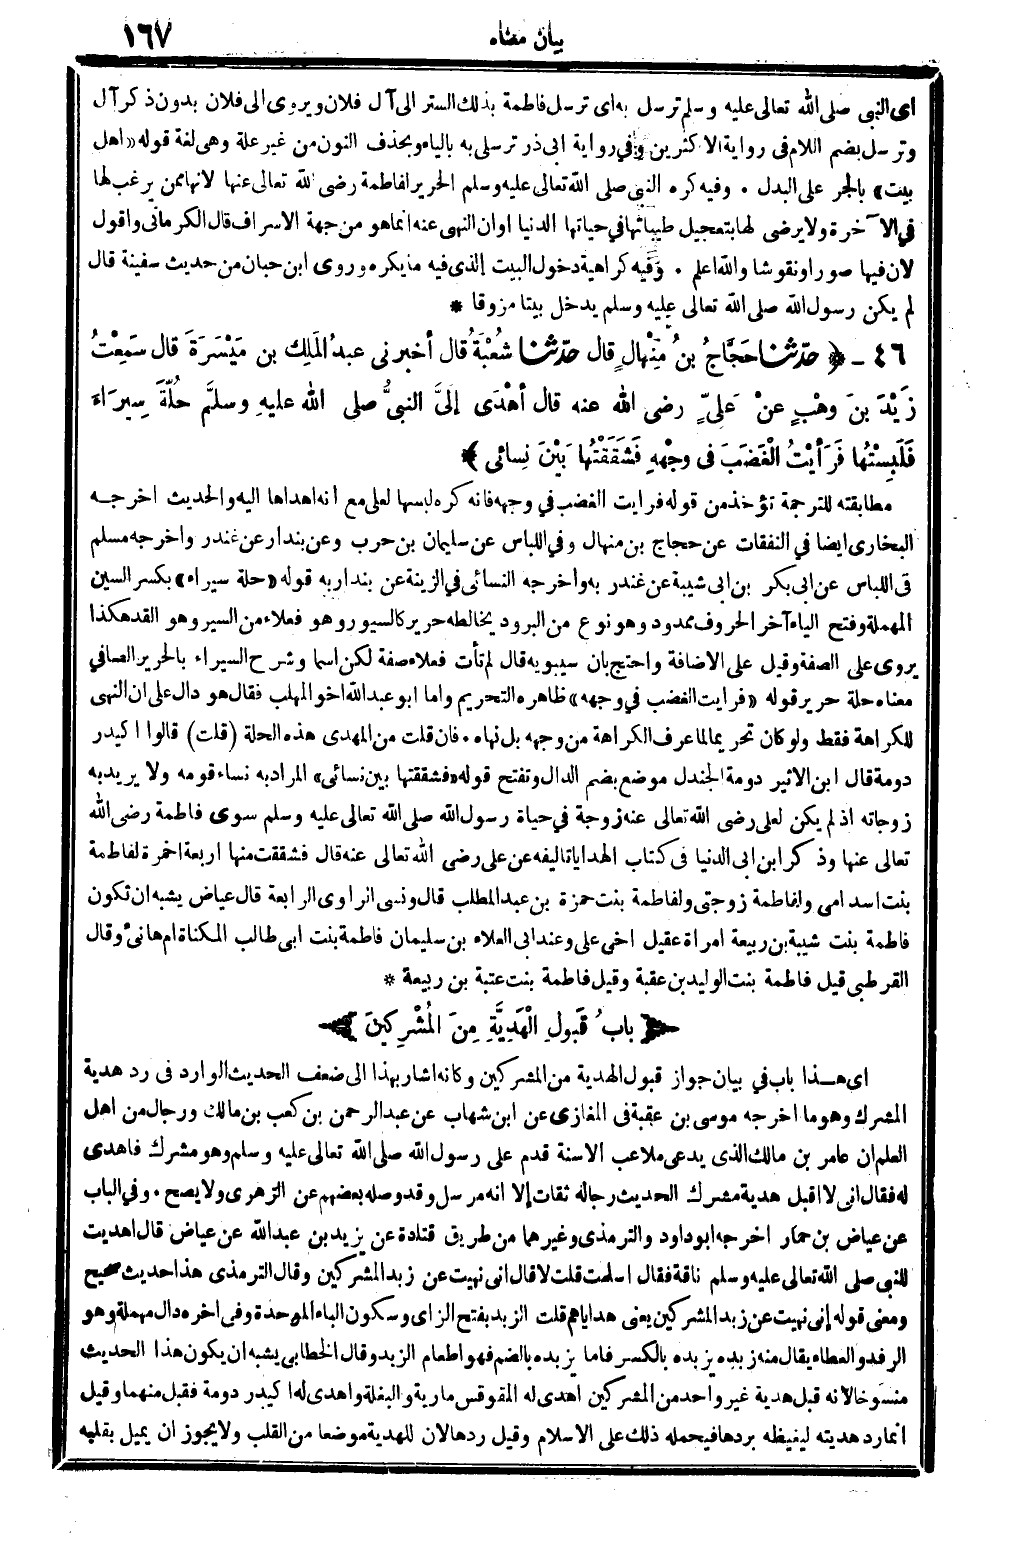 بيان معناه ١٦٧
اى النبى صلى الله تعالى عليه وسلم ترسل به اى ترسل فاطمة بذلك الستر الى آل فلان ويروى الى فلان بدون ذكر آل
وترسل بضم اللام فى رواية الاكثرين وفي رواية ابى ذر ترسلى به بالياء وبحذف النون من غير علة وهى لغة قوله «اهل
بيت» بالجر على البدل . وفيه كره النبى صلى الله تعالى عليه وسلم الحرير لفاطمة رضى الله تعالى عنها لانها ممن يرغب لها
في الآخرة ولا يرضى لها بتعجيل طيباتها في حياتها الدنيا او ان النهى عنه انما هو من جهة الاسراف قال الكرمانى واقول
لان فيها صورا ونقوشا والله اعلم . وفيه كراهية دخول البيت الذى فيه ما يكره وروى ابن حبان من حديث سفينة قال
لم يكن رسول الله صلى الله تعالى عليه وسلم يدخل بيتا مزوقا *
٤٦ - ﴿ حَدّثنا حَجَّاجُ بنُ مِنْهالٍ قال حَدّثنا شُعْبَةُ قال أخبرنى عبدُ المَلِكِ بن مَيْسَرَةَ قال سَمِعْتُ
زَيْدَ بنَ وهْبٍ عنْ عَلِىٍّ رضى الله عنه قال أهْدَى إلَىَّ النبىُّ صلى الله عليهِ وسلَّم حُلّةَ سِيرَاءَ
فَلَبِسْتُها فَرَأيْتُ الْغَضَبَ فى وجْهِهِ فَشَقَقْتُها بَيْنَ نِسائى ﴾
مطابقته للترجمة تؤخذ من قوله فرايت الغضب في وجهه فانه كره لبسها لعلى مع انه اهداها اليه والحديث اخرجه
البخارى ايضا في النفقات عن حجاج بن منهال وفي اللباس عن سليمان بن حرب وعن بندار عن غندر واخرجه مسلم
فى اللباس عن ابى بكر بن ابى شيبة عن غندر به واخرجه النسائى في الزينة عن بندار به قوله «حلة سيراء» بكسر السين
المهملة وفتح الياء آخر الحروف ممدود وهو نوع من البرود يخالطه حرير كالسيور وهو فعلاء من السير وهو القد هكذا
يروى على الصفة وقيل على الاضافة واحتج بان سيبويه قال لم تأت فعلاء صفة لكن اسما وشرح السيراء بالحرير الصافي
معناه حلة حرير قوله «فرايت الغضب في وجهه» ظاهره التحريم واما ابو عبدالله اخو المهلب فقال هو دال على ان النهى
للكراهة فقط ولو كان تحريما لما عرف الكراهة من وجهه بل نهاه . فان قلت من المهدى هذه الحلة (قلت) قالوا اكيدر
دومة قال ابن الاثير دومة الجندل موضع بضم الدال وتفتح قوله «فشققتها بين نسائى» المراد به نساء قومه ولا يريد به
زوجاته اذ لم يكن لعلى رضى الله تعالى عنه زوجة في حياة رسول الله صلى الله تعالى عليه وسلم سوى فاطمة رضى الله
تعالى عنها وذكر ابن ابى الدنيا فى كتاب الهدايا تاليفه عن على رضى الله تعالى عنه قال فشققت منها اربعة اخمرة لفاطمة
بنت اسد امى ولفاطمة زوجتى ولفاطمة بنت حمزة بن عبد المطلب قال ونسى الراوى الرابعة قال عياض يشبه ان تكون
فاطمة بنت شيبة بن ربيعة امراة عقيل اخى على وعند ابى العلاء بن سليمان فاطمة بنت ابى طالب المكناة ام هانئ وقال
القرطبى قيل فاطمة بنت الوليد بن عقبة وقيل فاطمة بنت عتبة بن ربيعة *
﴿ بابُ قَبُولِ الْهَدِيَّةِ مِنَ المُشْرِكِينَ ﴾
اى هــذا باب في بيان جواز قبول الهدية من المشركين وكانه اشار بهذا الى ضعف الحديث الوارد فى رد هدية
المشرك وهو ما اخرجه موسى بن عقبة فى المغازى عن ابن شهاب عن عبد الرحمن بن كعب بن مالك ورجال من اهل
العلم ان عامر بن مالك الذى يدعى ملاعب الاسنة قدم على رسول الله صلى الله تعالى عليه وسلم وهو مشرك فاهدى
له فقال انى لا اقبل هدية مشرك الحديث رجاله ثقات إلا انه مرسل وقد وصله بعضهم عن الزهرى ولا يصح . وفي الباب
عن عياض بن حمار اخرجه ابو داود والترمذى وغيرهما من طريق قتادة عن يزيد بن عبد الله عن عياض قال اهديت
للنبى صلى الله تعالى عليه وسلم ناقة فقال اسلمت قلت لا قال انى نهيت عن زبد المشركين وقال الترمذى هذا حديث صحيح
ومعنى قوله إنى نهيت عن زبد المشركين يعنى هداياهم قلت الزبد بفتح الزاى وسكون الباء الموحدة وفى اخره دال مهملة وهو
الرفد والعطاء يقال منه زبده يزبده بالكسر فاما يزبده بالضم فهو اطعام الزبد وقال الخطابى يشبه ان يكون هذا الحديث
منسوخا لانه قبل هدية غير واحد من المشركين اهدى له المقوقس مارية والبغلة واهدى له اكيدر دومة فقبل منهما وقيل
انما رد هديته ليغيظه بردها فيحمله ذلك على الاسلام وقيل ردها لان للهدية موضعا من القلب ولا يجوز ان يميل بقلبه